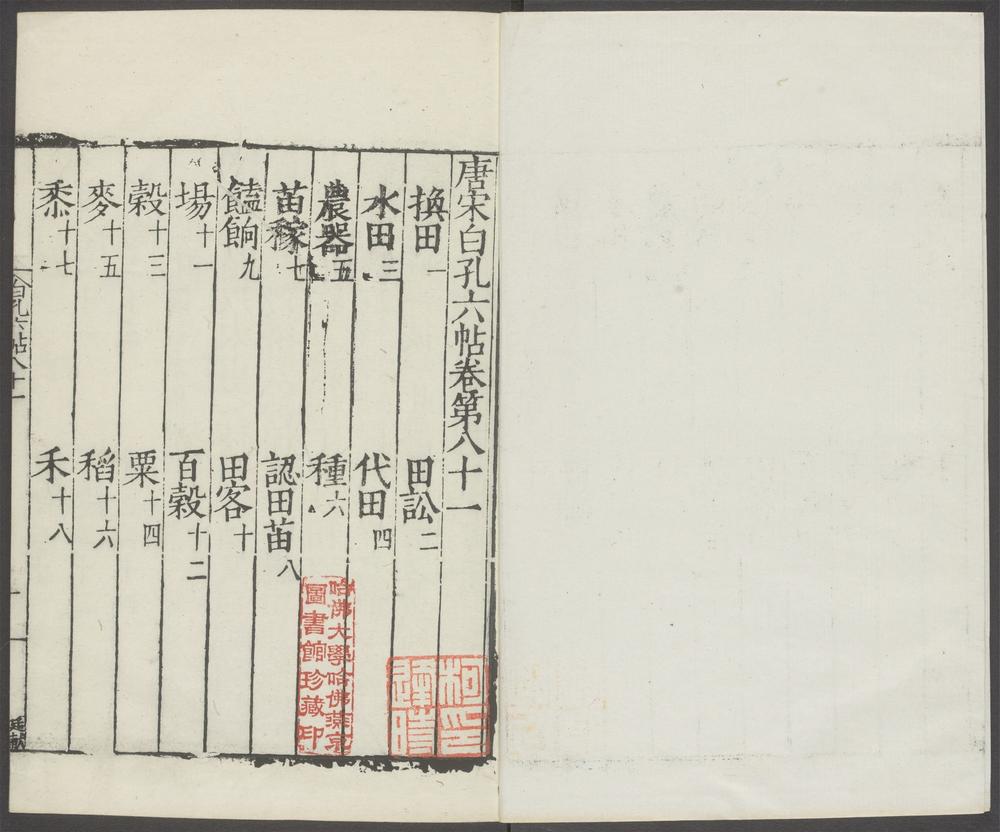 唐宋白孔六帖卷第八十一
換田一 田訟二
水田三 代田四
農器五 種六
苗稼七 認田苗八
饁餉九 田客十
場十一 百穀十二
穀十三 粟十四
麥十五 稻十六
黍十七 禾十八
白孔六帖八十一
哈佛大學哈佛燕京
圖書館珍藏印